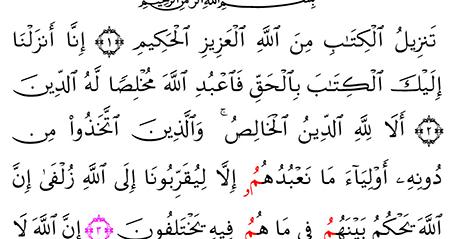 بِسْمِ اللَّهِ الرَّحْمَٰنِ الرَّحِيمِ
تَنزِيلُ الْكِتَٰبِ مِنَ اللَّهِ الْعَزِيزِ الْحَكِيمِ ١ إِنَّا أَنزَلْنَا
إِلَيْكَ الْكِتَٰبَ بِالْحَقِّ فَاعْبُدِ اللَّهَ مُخْلِصًا لَهُ الدِّينَ
٢ أَلَا لِلَّهِ الدِّينُ الْخَالِصُ ۚ وَالَّذِينَ اتَّخَذُوا۟ مِن
دُونِهِۦ أَوْلِيَآءَ مَا نَعْبُدُهُمُۥ إِلَّا لِيُقَرِّبُونَا إِلَى اللَّهِ زُلْفَىٰ إِنَّ
اللَّهَ يَحْكُمُ بَيْنَهُمُۥ فِى مَا هُمُۥ فِيهِ يَخْتَلِفُونَ ٣ إِنَّ اللَّهَ لَا